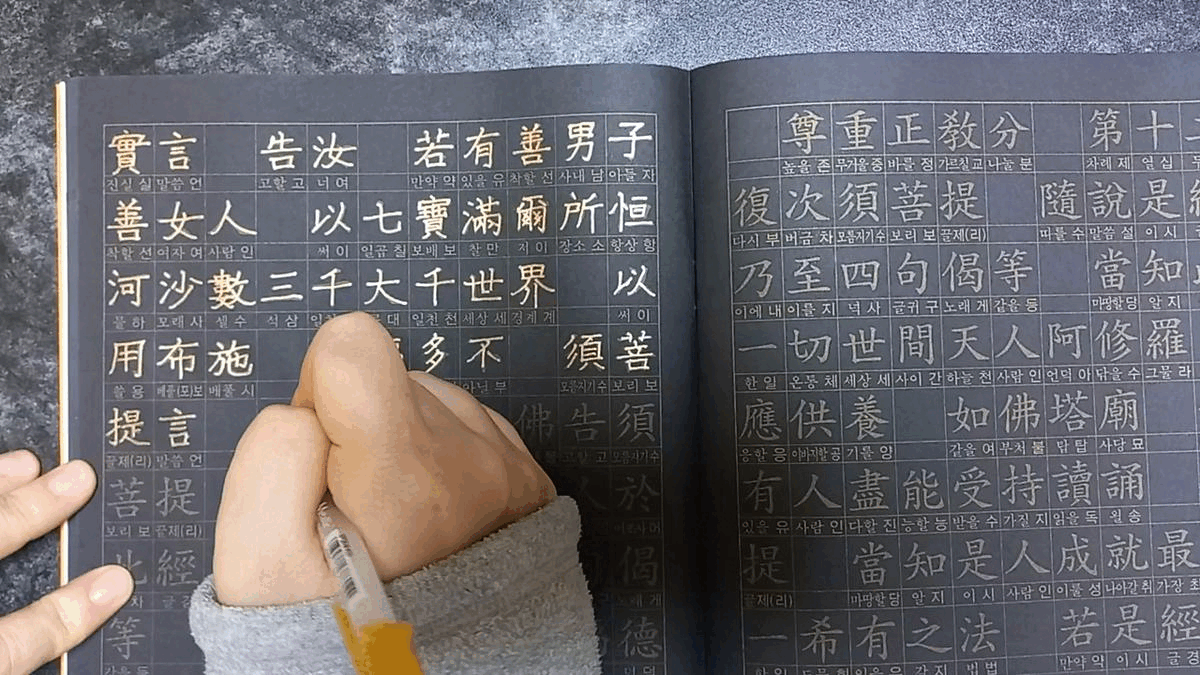 實言 告汝 若有善男子
진실 실 말씀 언 고할 고 너 여 만약 약 있을 유 착할 선 사내 남 아들 자
善女人 以七寶滿爾所恒
착할 선 여자 여 사람 인 써 이 일곱 칠 보배 보 찰 만 저 이 장소 소 항상 항
河沙數三千大千世界 以
물 하 모래 사 셀 수 석 삼 대 일천 천 세상 세 경계 계 써 이
用布施 多不 須菩
쓸 용 베풀(포)보 베풀 시 아닐 부 모름지기 수 보리 보
提言 佛告須
끌제(리) 말씀 언 고할 고 모름지기 수
菩提 人於
보리 보 끌제(리)
此經 偈
노래 게
等 德
尊重正教分 第十
높을 존 무거울 중 바를 정 가르칠 교 나눌 분 차례 제 열 십
復次須菩提 隨說是
다시 부 버금 차 모름지기 수 보리 보 끌제(리) 따를 수 말씀 설 이 시
乃至四句偈等 當知
이에 내 이를 지 넉 사 글귀 구 노래 게 같을 등 마땅할 당 알 지
一切世間天人阿修羅
한 일 온통 체 세상 세 사이 간 하늘 천 사람 인 언덕 아 닦을 수 그물 라
應供養 如佛塔廟
응할 응 이바지할 공 기를 양 같을 여 부처 불 탑 탑 사당 묘
有人盡能受持讀誦
있을 유 사람 인 다할 진 능할 능 받을 수 가질 지 읽을 독 욀 송
提 當知是人成就最
끌제(리) 마땅할 당 알 지 이 시 사람 인 이룰 성 나아갈 취 가장 최
一希有之法 若是經
만약 약 이 시 글 경